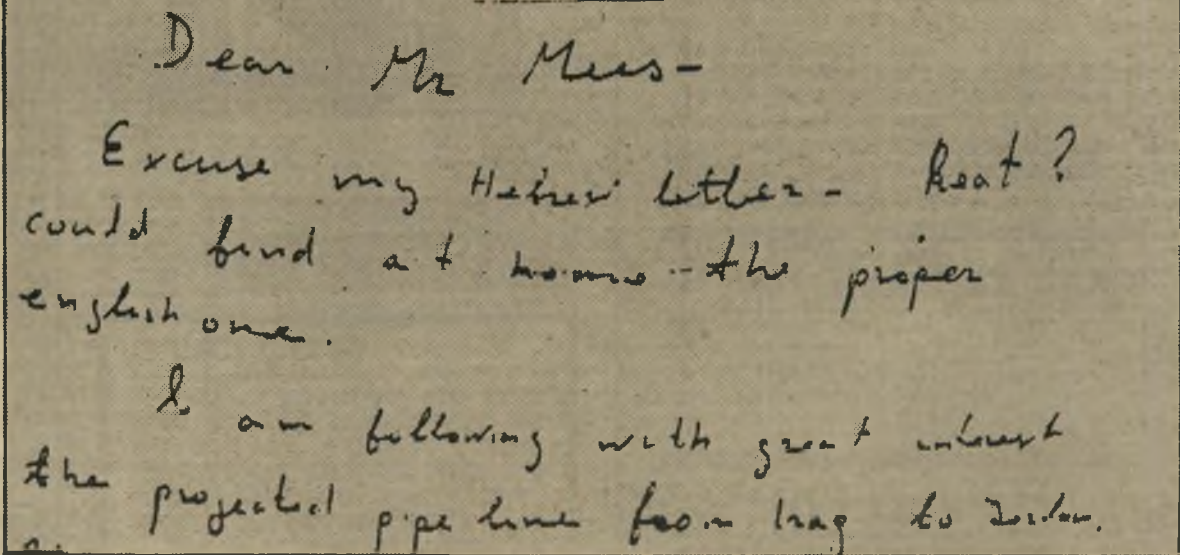 Dear Mr Mees-
Excuse my Hebrew letther - ?
could find at home - the proper
english one.
I am following with great interest
the projected pipe line from Iraq to Jordan.